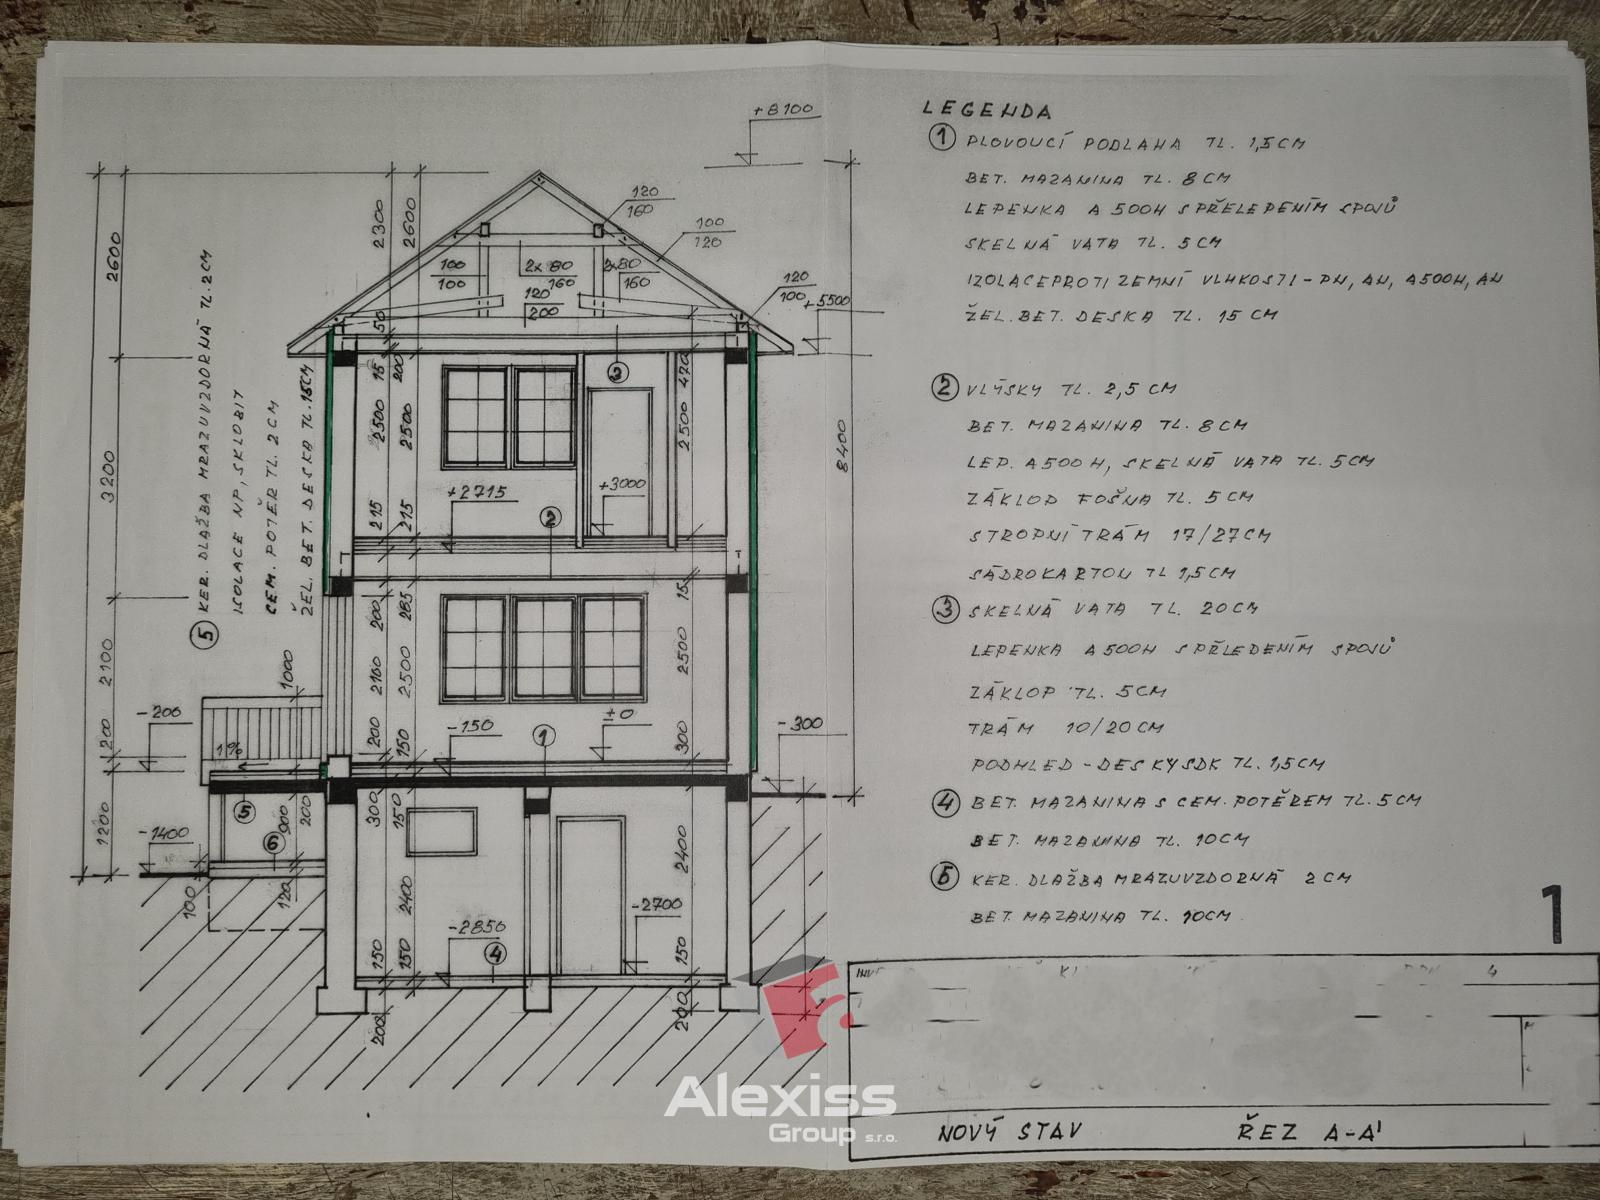 LEGENDA
① PLOVOUCÍ PODLAHA TL. 1,5CM
BET. MAZANINA TL. 8CM
LEPENKA A 500H S PŘELEPENÍM SPOJŮ
SKELNÁ VATA TL. 5CM
IZOLACE PROTI ZEMNÍ VLHKOSTI - PN, AN, A500H, AN
ŽEL. BET. DESKA TL. 15 CM
② VLÝSKY TL. 2,5 CM
BET. MAZANINA TL. 8CM
LEP. A500H, SKELNÁ VATA TL. 5CM
ZÁKLOP FOŠNA TL. 5 CM
STROPNÍ TRÁM 17/27CM
SÁDROKARTON TL 1,5CM
③ SKELNÁ VATA TL. 20CM
LEPENKA A500H S PŘELEDENÍM SPOJŮ
ZÁKLOP TL. 5CM
TRÁM 10/20CM
PODHLED - DESKY SDK TL. 1,5CM
④ BET. MAZANINA S CEM. POTĚREM TL. 5CM
BET. MAZANINA TL. 10CM
⑤ KER. DLAŽBA MRAZUVZDORNÁ 2CM
BET. MAZANINA TL. 10CM
⑤ KER. DLAŽBA MRAZUVZDORNÁ TL. 2CM
ISOLACE NP, SKLOBIT
CEM. POTĚR TL. 2CM
ŽEL. BET. DESKA TL. 15CM
+8100
2600
2300
2600
120
160
100
120
100
100
2x80
160
2x80
160
120
200
120
100
+5500
50
15
200
③
420
3200
2500
2500
2500
8400
+2715
+3000
215
215
②
200
285
15
2100
2160
2500
2500
1000
-200
200
1%
200
150
-150
①
±0
300
-300
1200
-1400
⑤
⑥
900
200
300
150
2400
2400
100
120
-2850
④
-2700
150
150
150
200
200
1
Alexiss
Group s.r.o.
NOVÝ STAV
ŘEZ A-A'